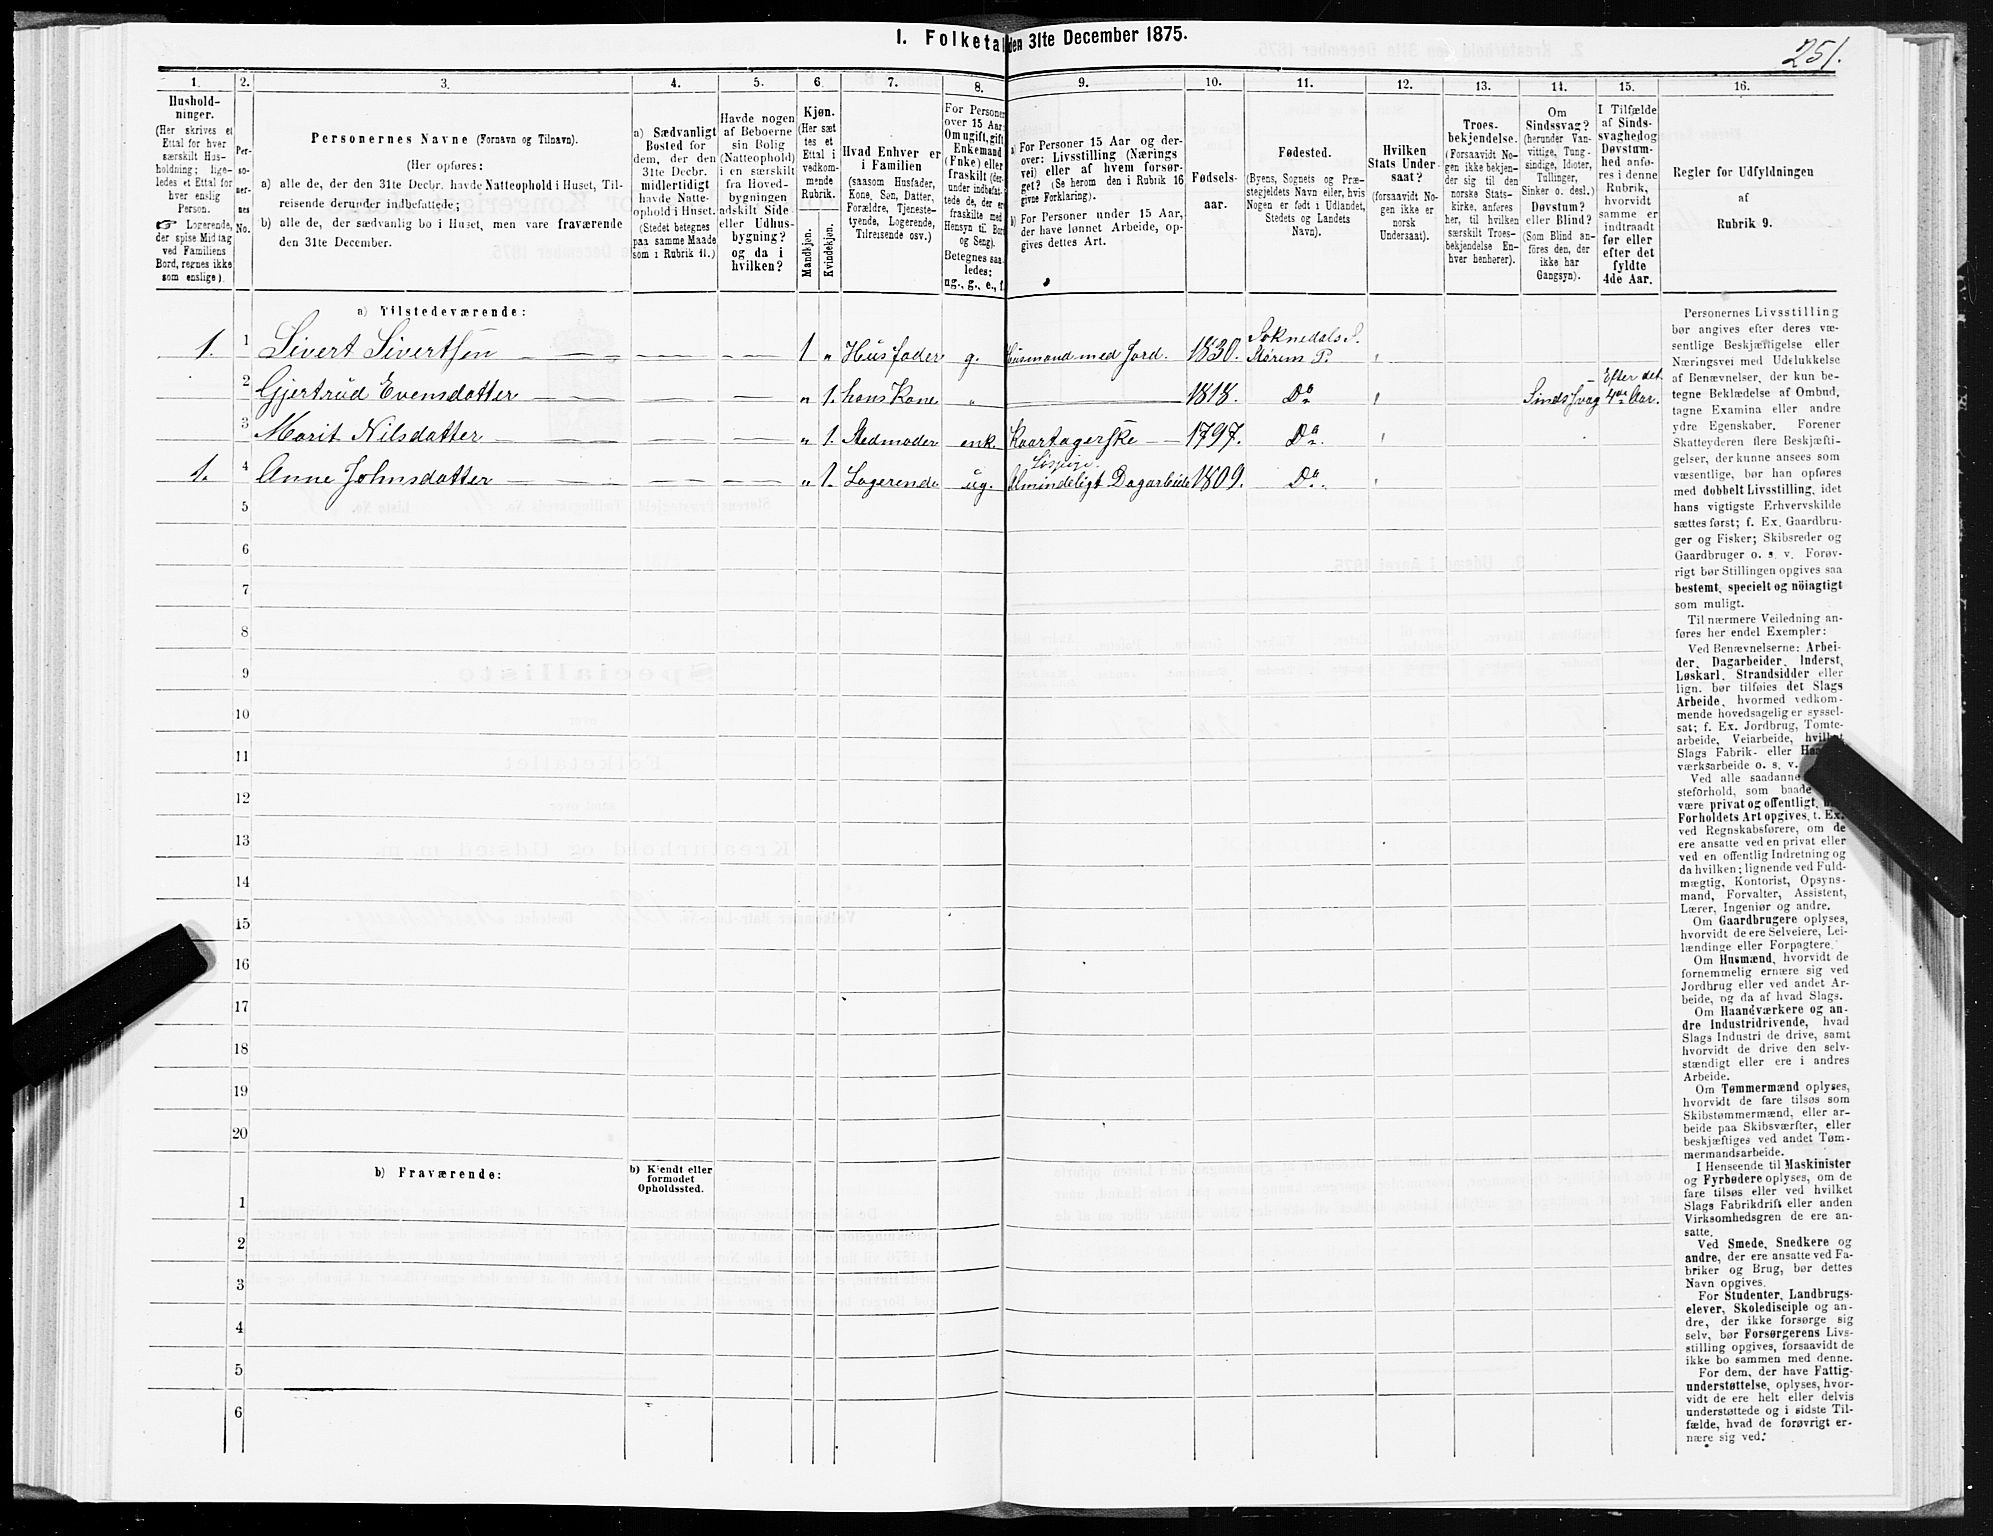 I. Folketal den 31te December 1875.
251.
1.
Hushold-
ninger.
(Her skrives et
Ettal for hver
særskilt Hus-
holdning; lige-
ledes et Ettal for
hver enslig
Person.
☞ Logerende,
der spise Middag
ved Familiens
Bord, regnes ikke
som enslige).
2.
Per-
so-
ner-
nes
No.
3.
Personernes Navne (Fornavn og Tilnavn).
(Her opføres:
a) alle de, der den 31te Decbr. havde Natteophold i Huset, Til-
reisende derunder indbefattede;
b) alle de, der sædvanlig bo i Huset, men vare fraværende
den 31te December.
4.
a) Sædvanligt
Bosted for
dem, der den
31te Decbr.
midlertidigt
havde Natte-
ophold i Huset.
(Stedet betegnes
paa samme Maade
som i Rubrik 11.)
5.
Havde nogen
af Beboerne
sin Bolig
(Natteophold)
i en særskilt
fra Hoved-
bygningen
adskilt Side-
eller Udhus-
bygning?
og da i
hvilken?
6.
Kjøn.
(Her sæt-
tes et
Ettal i
vedkom-
mende
Rubrik.
Mandkjøn.
Kvindekjøn.
7.
Hvad Enhver er
i Familien
(saasom Husfader,
Kone, Søn, Datter,
Forældre, Tjeneste-
tyende, Logerende,
Tilreisende osv.)
8.
For Personer
over 15 Aar:
Om ugift, gift,
Enkemand
(Enke) eller
fraskilt (der-
under indbefat-
tede de, der er
fraskilte med
Hensyn til Bord
og Seng).
Betegnes saa-
ledes:
ug., g., e., f.
9.
a) For Personer 15 Aar og der-
over: Livsstilling (Nærings-
vei) eller af hvem forsør-
get? (Se herom den i Rubrik 16
givne Forklaring).
b) For Personer under 15 Aar,
der have lønnet Arbeide, op-
gives dettes Art.
10.
Fødsels-
aar.
11.
Fødested.
(Byens, Sognets og Præ-
stegjeldets Navn eller, hvis
Nogen er født i Udlandet,
Stedets og Landets
Navn).
12.
Hvilken
Stats Under-
saat?
(forsaavidt No-
gen ikke er
norsk
Undersaat).
13.
Troes-
bekjendelse.
(Forsaavidt No-
gen ikke bekjen-
der sig til den
norske Stats-
kirke, anføres
her, til hvilken
særskilt Troes-
bekjendelse En-
hver henhører).
14.
Om
Sindssvag?
(herunder Van-
vittige, Tung-
sindige, Idioter,
Tullinger,
Sinker o. desl.)
Døvstum?
eller Blind?
(Som Blind an-
føres den, der
ikke har
Gangsyn).
15.
I Tilfælde
af Sinds-
svaghed og
Døvstum-
hed anfø-
res i denne
Rubrik,
hvorvidt
samme er
indtraadt
før eller
efter det
fyldte
4de Aar.
16.
Regler for Udfyldningen
af
Rubrik 9.
a) Tilstedeværende:
1. 1 Sivert Sivertsen 1 „ Husfader g. Husmand med Jord. 1830. Soknedals S. Støren P.
2 Gjertrud Evensdatter „ 1. hans Kone „ 1818. Do Sindssvag Efter det 4de Aar.
3 Marit Nilsdatter „ 1. Stedmoder enk. Kaartagerske 1797. Do.
1. 4 Anne Johnsdatter „ 1. Logerende ug. Løspige. Almindeligt Dagarbeide 1809. Do.
5
6
7
8
9
10
11
12
13
14
15
16
17
18
19
20
b) Fraværende:
b) Kjendt eller
formodet
Opholdssted.
1
2
3
4
5
6
Personernes Livsstilling
bør angives efter deres væ-
sentlige Beskjæftigelse eller
Næringsvei med Udelukkelse
af Benævnelser, der kun be-
tegne Beklædelse af Ombud,
tagne Examina eller andre
ydre Egenskaber. Forener
Skatteyderen flere Beskjæfti-
gelser, der kunne ansees som
væsentlige, bør han opføres
med dobbelt Livsstilling, idet
hans vigtigste Erhvervskilde
sættes først; f. Ex. Gaardbru-
ger og Fisker; Skibsreder og
Gaardbruger o. s. v. Forøv-
rigt bør Stillingen opgives saa
bestemt, specielt og nöiagtigt
som muligt.
Til nærmere Veiledning an-
føres her endel Exempler:
Ved Benævnelserne: Arbei-
der, Dagarbeider, Inderst,
Løskarl, Strandsidder eller
lign. bør tilføies det Slags
Arbeide, hvormed vedkom-
mende hovedsagelig er syssel-
sat; f. Ex. Jordbrug, Tomte-
arbeide, Veiarbeide, hvilket
Slags Fabrik- eller
værksarbeide o. s. v.
Ved alle saadanne
steforhold, som baade
være privat og offentligt,
Forholdets Art opgives, t. Ex.
ved Regnskabsførere, om de
ere ansatte ved en privat eller
ved en offentlig Indretning og
da hvilken; lignende ved Fuld-
mægtig, Kontorist, Opsyns-
mand, Forvalter, Assistent,
Lærer, Ingeniør og andre.
Om Gaardbrugere oplyses,
hvorvidt de ere Selveiere, Lei-
lændinge eller Forpagtere.
Om Husmænd, hvorvidt de
fornemmelig ernære sig ved
Jordbrug eller ved andet Ar-
beide, og da af hvad Slags.
Om Haandværkere og an-
dre Industridrivende, hvad
Slags Industri de drive, samt
hvorvidt de drive den selv-
stændigt eller ere i andres
Arbeide.
Om Tømmermænd oplyses,
hvorvidt de fare tilsøs som
Skibstømmermænd, eller ar-
beide paa Skibsværfter, eller
beskjæftiges ved andet Tøm-
mermandsarbeide.
I Henseende til Maskinister
og Fyrbødere oplyses, om de
fare tilsøs eller ved hvilket
Slags Fabrikdrift eller anden
Virksomhedsgren de ere an-
satte.
Ved Smede, Snedkere og
andre, der ere ansatte ved Fa-
briker og Brug, bør dettes
Navn opgives.
For Studenter, Landbrugs-
elever, Skoledisciple og an-
dre, der ikke forsørge sig
selv, bør Forsørgerens Livs-
stilling opgives, forsaavidt de
ikke bo sammen med denne.
For dem, der have Fattig-
understøttelse, oplyses, hvor-
vidt de ere helt eller delvis
understøttede og i sidste Til-
fælde, hvad de forøvrigt er-
nære sig ved.